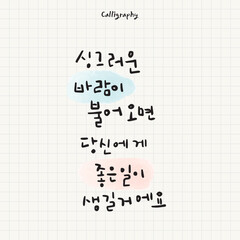 Calligraphy
싱그러운
바람이
불어오면
당신에게
좋은일이
생길거에요